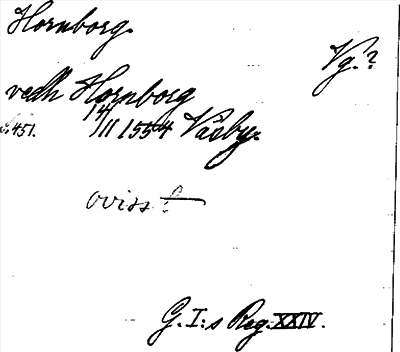 Hornborg.
Vg.?
vedh Hornborg
s. 451. 14/11 1554 Väsby.
ovisst
G. I:s Reg. XXIV.